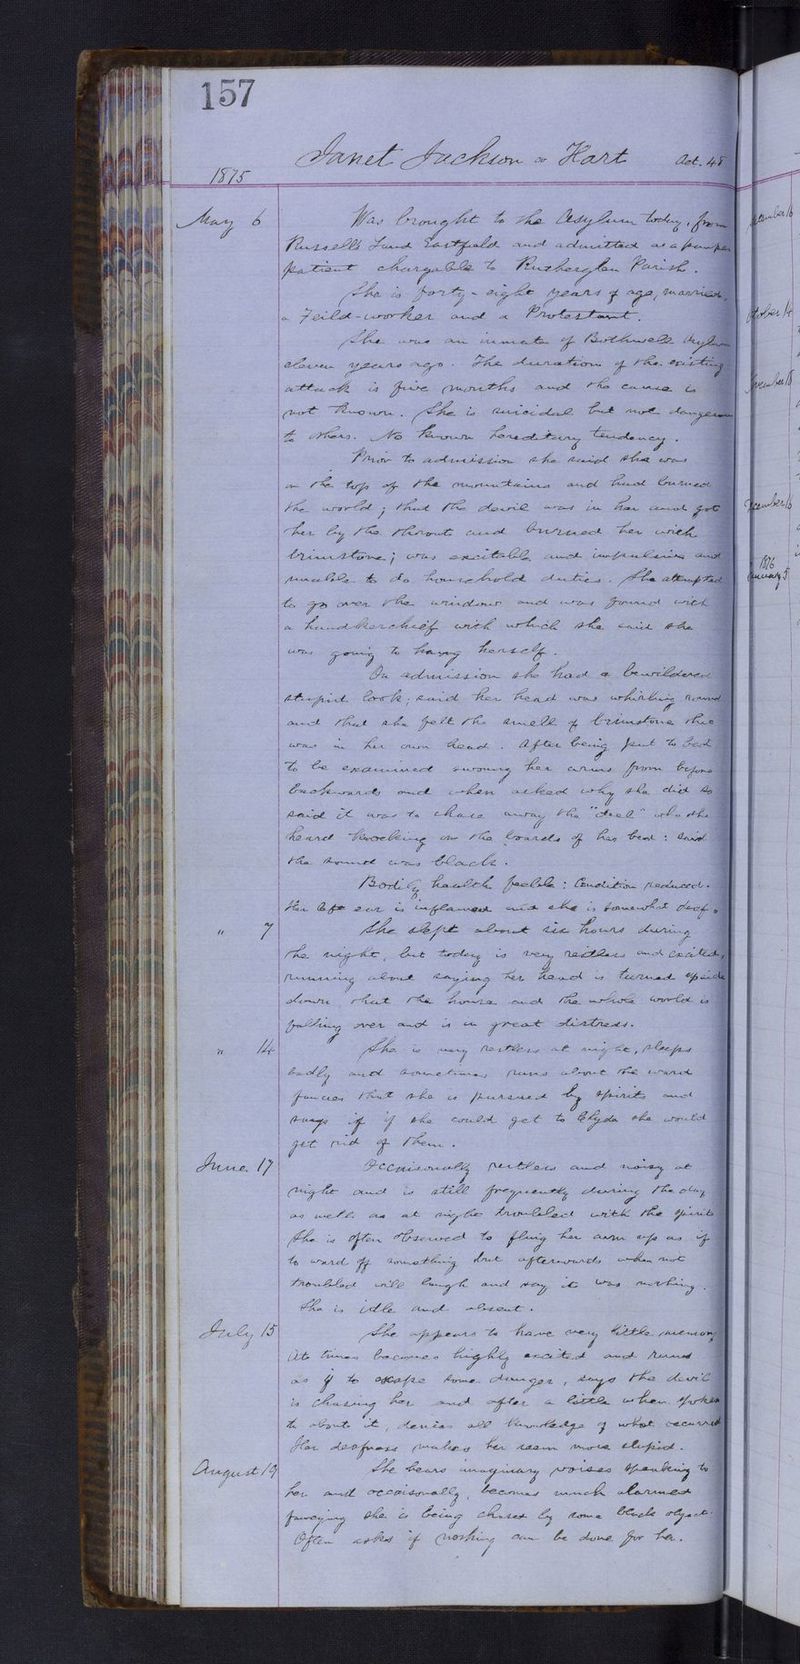 157
Janet Jackson or Hart Aet. 48
1875
May 6 Was brought to the Asylum today, from
Russell's Land Eastfield and admitted as a pauper
patient chargable to Rutherglen Parish.
She is forty-eight years of age, married,
a Feild-worker and a Protestant.
She was an inmate of Bothwell Asylum
eleven years ago. The duration of the existing
attack is five months and the cause is
not known. She is suicidal but not dangerous
to others. No known hereditary tendency.
Prior to admission she said she was
on the top of the mountains and had burned
the world; that the devil was in her and got
her by the throat and burned her with
brimstone; was excitable and impulsive and
unable to do household duties. She attempted
to go over the window and was found with
a handkerchief with which she said she
was going to hang herself.
On admission she had a bewildered
stupid look; said her head was whirling round
and that she felt the smell of brimstone that
was in her own head. After being put to bed
to be examined swung her arms from before
backwards and when asked why she did so
said it was to chase away the "deel" who she
heard knocking on the boards of her bed: said
the sound was black.
Bodily health feeble: Condition reduced.
Her left ear is inflamed and she is somewhat deaf.
" 7 She slept about six hours during
the night, but today is very restless and excited,
running about saying her head is turned upside
down, that the house and the whole world is
falling over and is in great distress.
" 14 She is very restless at night, sleeps
badly and sometimes runs about the ward
fancies that she is pursued by spirits and
says if if she could get to Clyde she would
get rid of them.
June 17 Occaisonally restless and noisy at
night and is still frequently during the day
as well as at night troubled with the spirits
She is often observed to fling her arm up as if
to ward off something but afterwards when not
troubled will laugh and say it was nothing.
She is idle and absent.
July 15 She appears to have very little memory
At times becomes highly excited and runs
as if to escape some danger, says the devil
is chasing her and after a little when spoken
to about it, denies all knowledge of what occurred
Her deafness makes her seem more stupid.
August 19 She hears imaginary voices speaking to
her and occaisonally becomes much alarmed
fancying she is being chased by some black object.
Often asks if nothing can be done for her.
1876